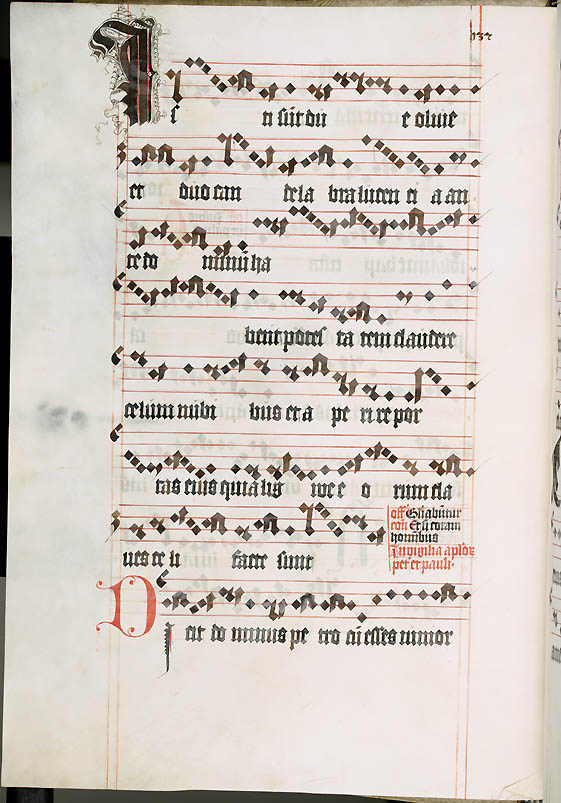 132
Isti sūt due oliue
et duo can dela bra lucen ci a an
te do minū ha
bent potes ta tem claudere
celum nubi bus et a pe ri re por
tas eius quia lig we e o rum cla
ues ce li facte sunt
off Gliabūtur
con Et si coram
hominibus
In vigilia aplorum
petri et pauli
Dicit do minus pe tro cū esses iunior